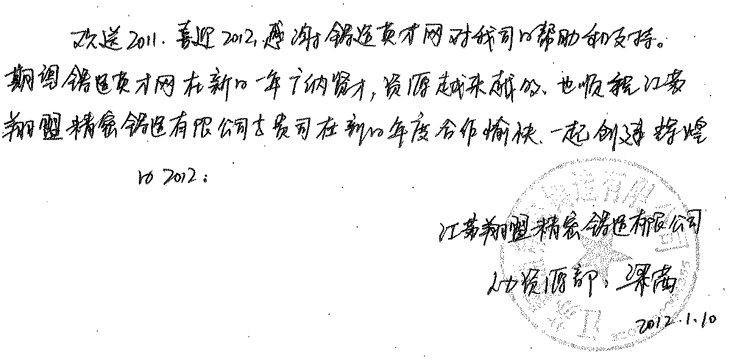 欢送2011.喜迎2012,感谢铸造英才网对我司的帮助和支持。
期望铸造英才网在新的一年广纳贤才,资源越来越多、也顺祝江苏
翔盟精密铸造有限公司与贵司在新的年度合作愉快.一起创建辉煌
的2012。
江苏翔盟精密铸造有限公司
人力资源部:梁茜
2012.1.10